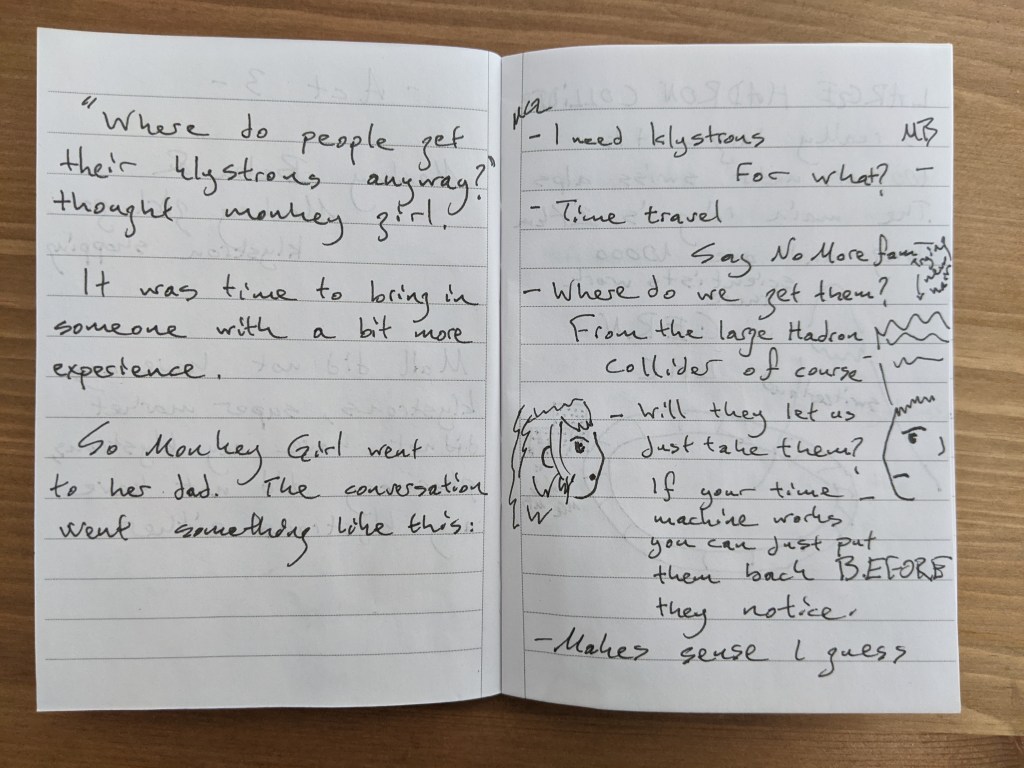 "Where do people get
their klystrons anyway?"
thought monkey girl.
It was time to bring in
someone with a bit more
experience.
So Monkey Girl went
to her dad. The conversation
went something like this:
MG
- I need klystrons MB
For what? -
- Time travel
Say No More fam
- Where do we get them?
From the large Hadron
collider of course -
- Will they let us
just take them?
If your time -
machine works
you can just put
them back BEFORE
they notice.
- Makes sense I guess